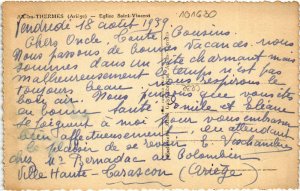 AX-les-THERMES (Ariège) - Eglise Saint-Vincent
101630
Vendredi 18 août 1939.
Chers Oncle, Tante, Cousins.
Nous passons de bonnes vacances. nous
sommes dans un site charmant mais
malheureusement le temps n'est pas
toujours beau. nous respirons le
bon air. Nous pensons que vous êtes
en bonne santé. Emile et
se joignent à moi pour vous embrasser
bien affectueusement. En attendant
le plaisir de se revoir. E.
chez Mr Bernadac au Colombier
Ville Haute - Tarascon (Ariège)